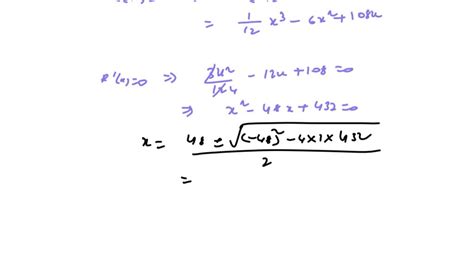 = 1/12 x³ - 6x² + 108x
R'(x)=0 ⇒ 3x²/12 4 - 12x + 108 = 0
⇒ x² - 48x + 432 = 0
x = 48 ± √(-48)² - 4×1×432 / 2
=